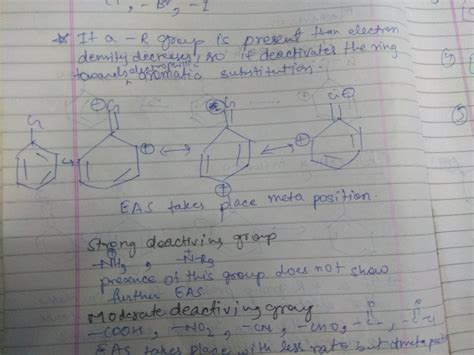 -Br, -I
* If a -R group is present than electron
density decreases, so it deactivates the ring
towards electrophilic aromatic substitution.
G G G G⊖
⊕ ⊕ ⊕ ⊕
EAS takes place meta position.
Strong deactiving group
-NH3, -NR3
presence of this group does not show
further EAS.
Moderate deactiving group
-COOH, -NO2, -CN, -CHO, -C-, -C-
EAS takes place with less rate but at meta